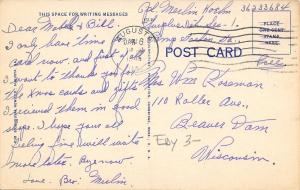 THIS SPACE FOR WRITING MESSAGES
Dear Motch & Bill:
I only have time for a
card now, and first of all
I want to thank you for
the Xmas cards and gifts
I received them in good
shape. I hope your all
feeling fine, will write
more later. Bye now.
Love. Bro: Merlin.
Merlin 36233684
AUGUSTA
JAN
POST CARD
PLACE
ONE CENT
STAMP
HERE
Free
Mrs Wm Roseman
110 Roller Ave.,
Beaver Dam
Wisconsin.